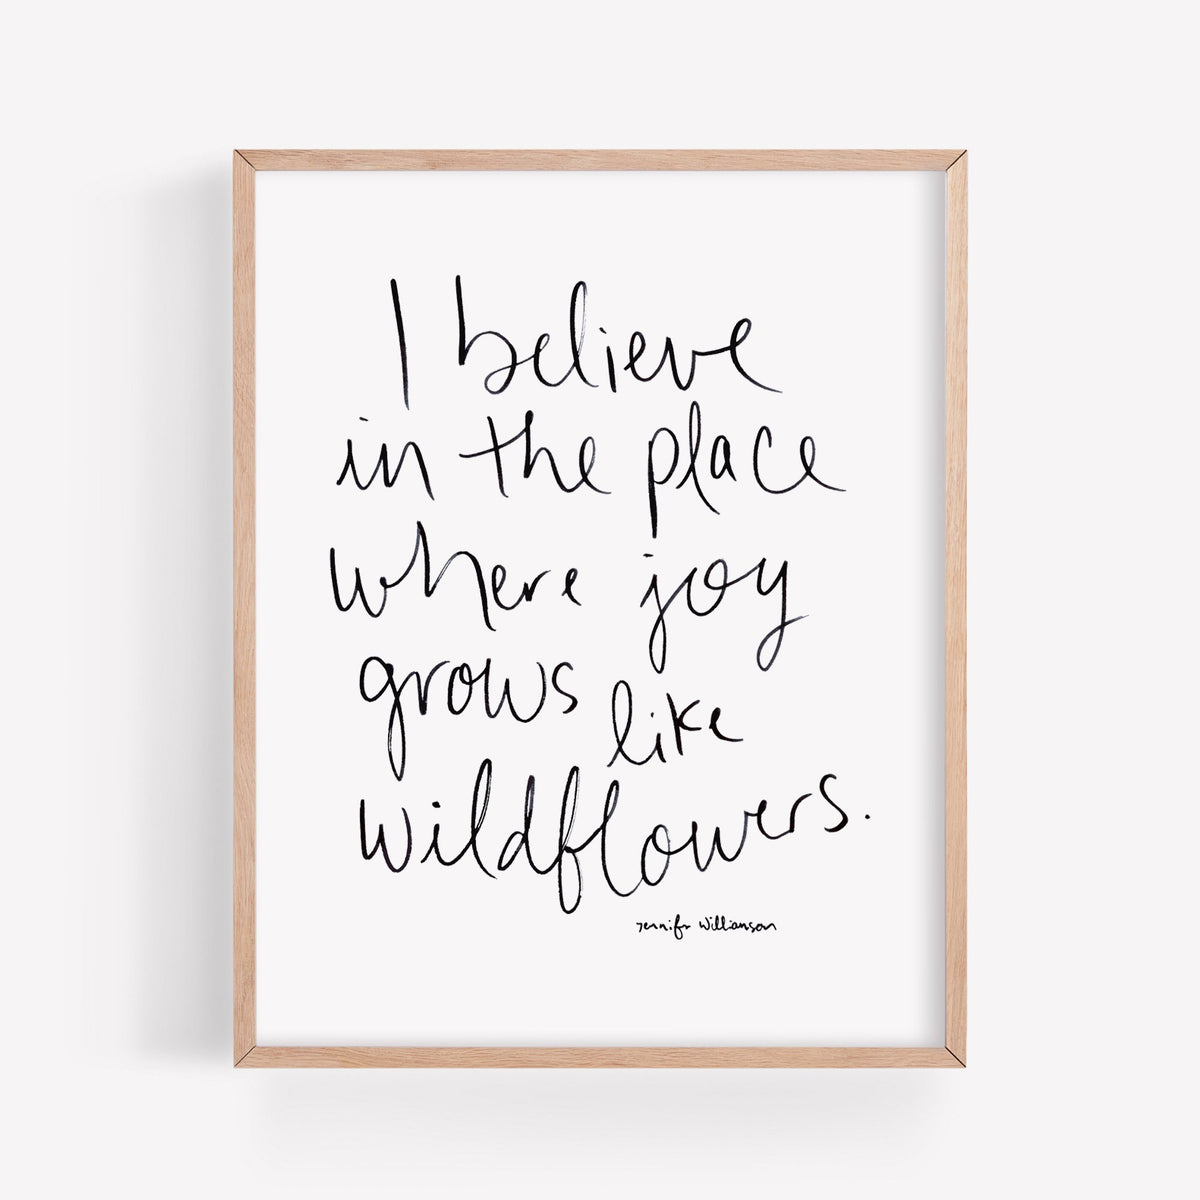 I believe
in the place
where joy
grows like
wildflowers.
Jennifer Williamson